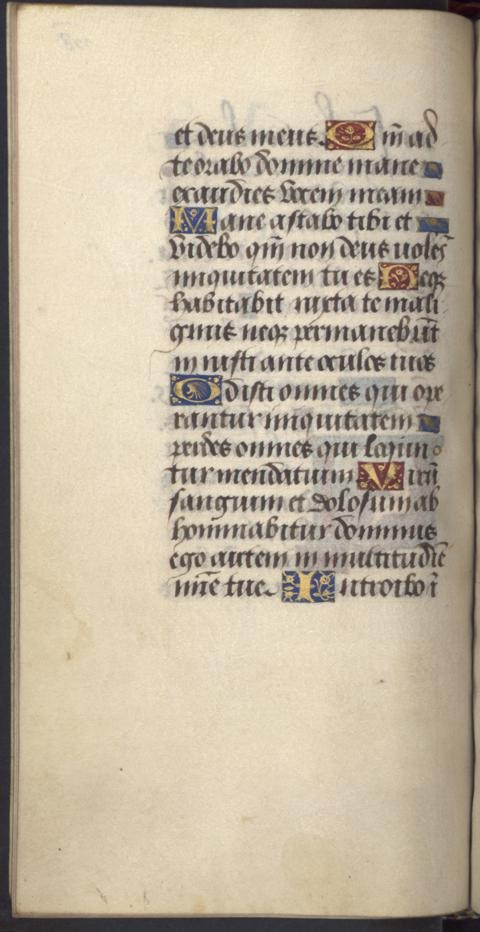 et deus meus. Qm̄ ad
te orabo domine mane
exaudies vocem meam
Mane astabo tibi et
videbo qm̄ non deus uolēs
iniquitatem tu es Neqꝫ
habitabit iuxta te mali
gnus neqꝫ permanebūt
iniusti ante oculos tuos
Odisti omnes qui ope
rantur iniquitatem
perdes omnes qui loqun
tur mendatium Virū
sanguinum et dolosum ab
hominabitur dominus
ego autem in multitudīe
mīe tue. Introibo ī